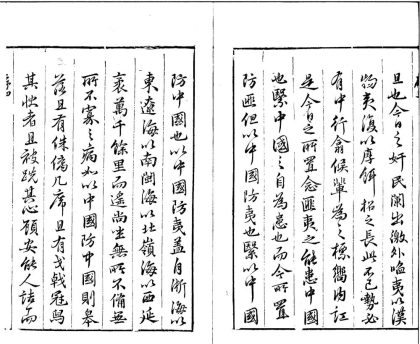 且也今日之奸民闌出徼外啗夷以漢
物夷復以厚餌招之長此不已勢必
有中行翕侯輩為之標嚮內訌
是今日之所置念匪夷之能患中國
也繄中國之自為患也而今所置
防匪但以中國防夷也繄以中國
防中國也以中國防夷蓋自浙海以
東遼海以南閩海以北嶺海以西延
袤萬千餘里而遙尚坐無所不備無
所不寡之病如以中國防中國則
落且有侏几席且有戈戟冠舄
其者且被跣其心顧安能人詰而